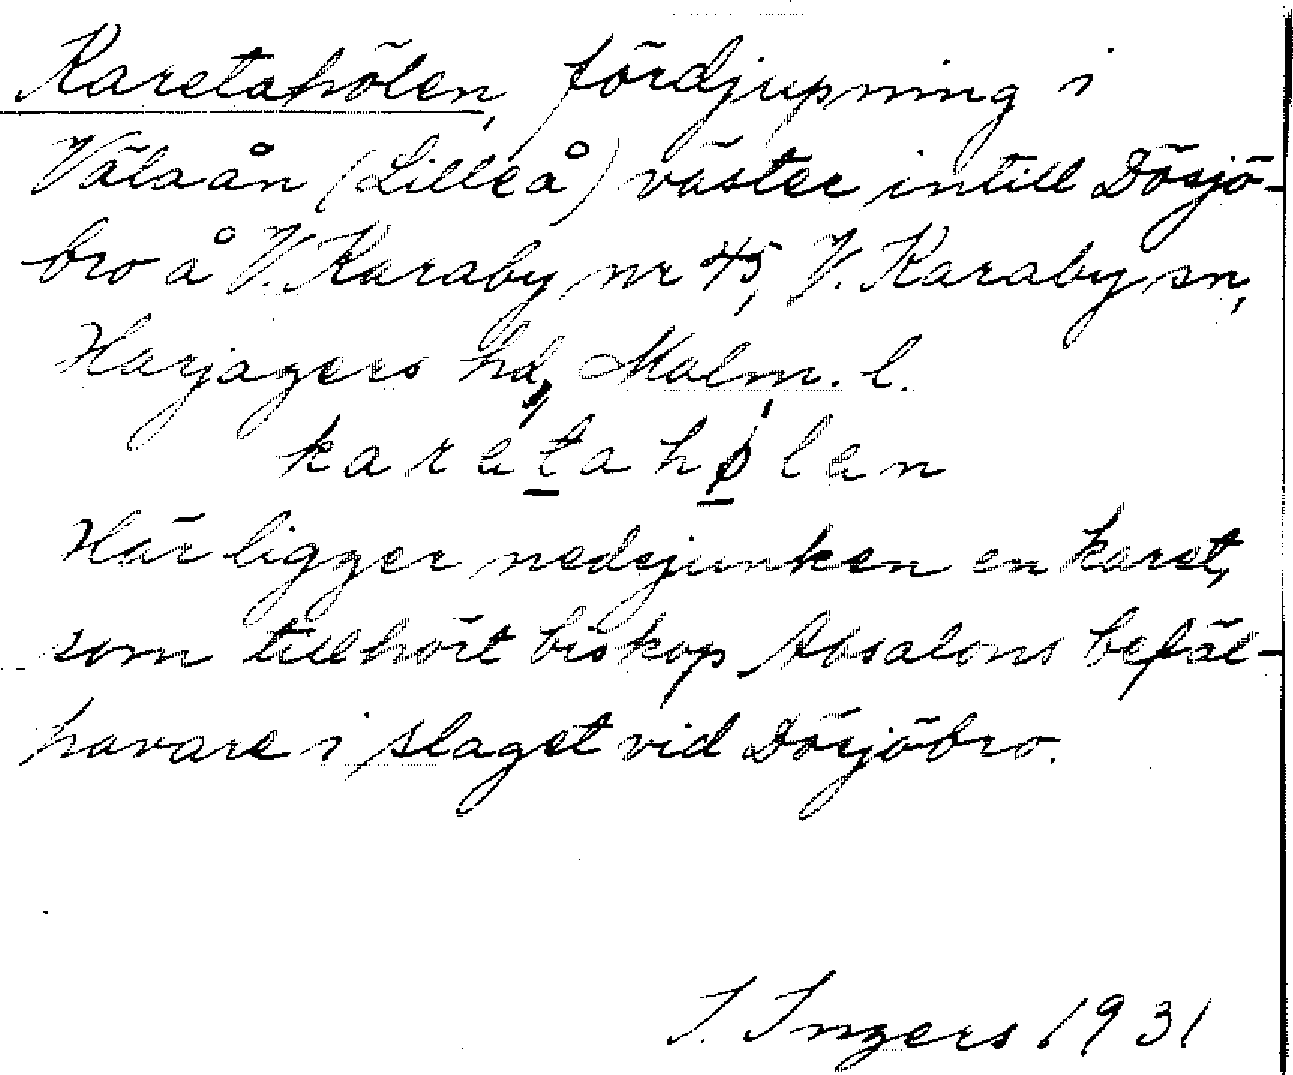 Karetahölen, fördjupning i
Välaån (Lilleå) väster intill Dösjö-
bro å V. Karaby nr 45, V. Karaby sn,
Harjagers hd, Malm. l.
karetahølen
Här ligger nedsjunken en karet,
som tillhört biskop Absalons befäl-
havare i slaget vid Dösjöbro.
I. Ingers 1931